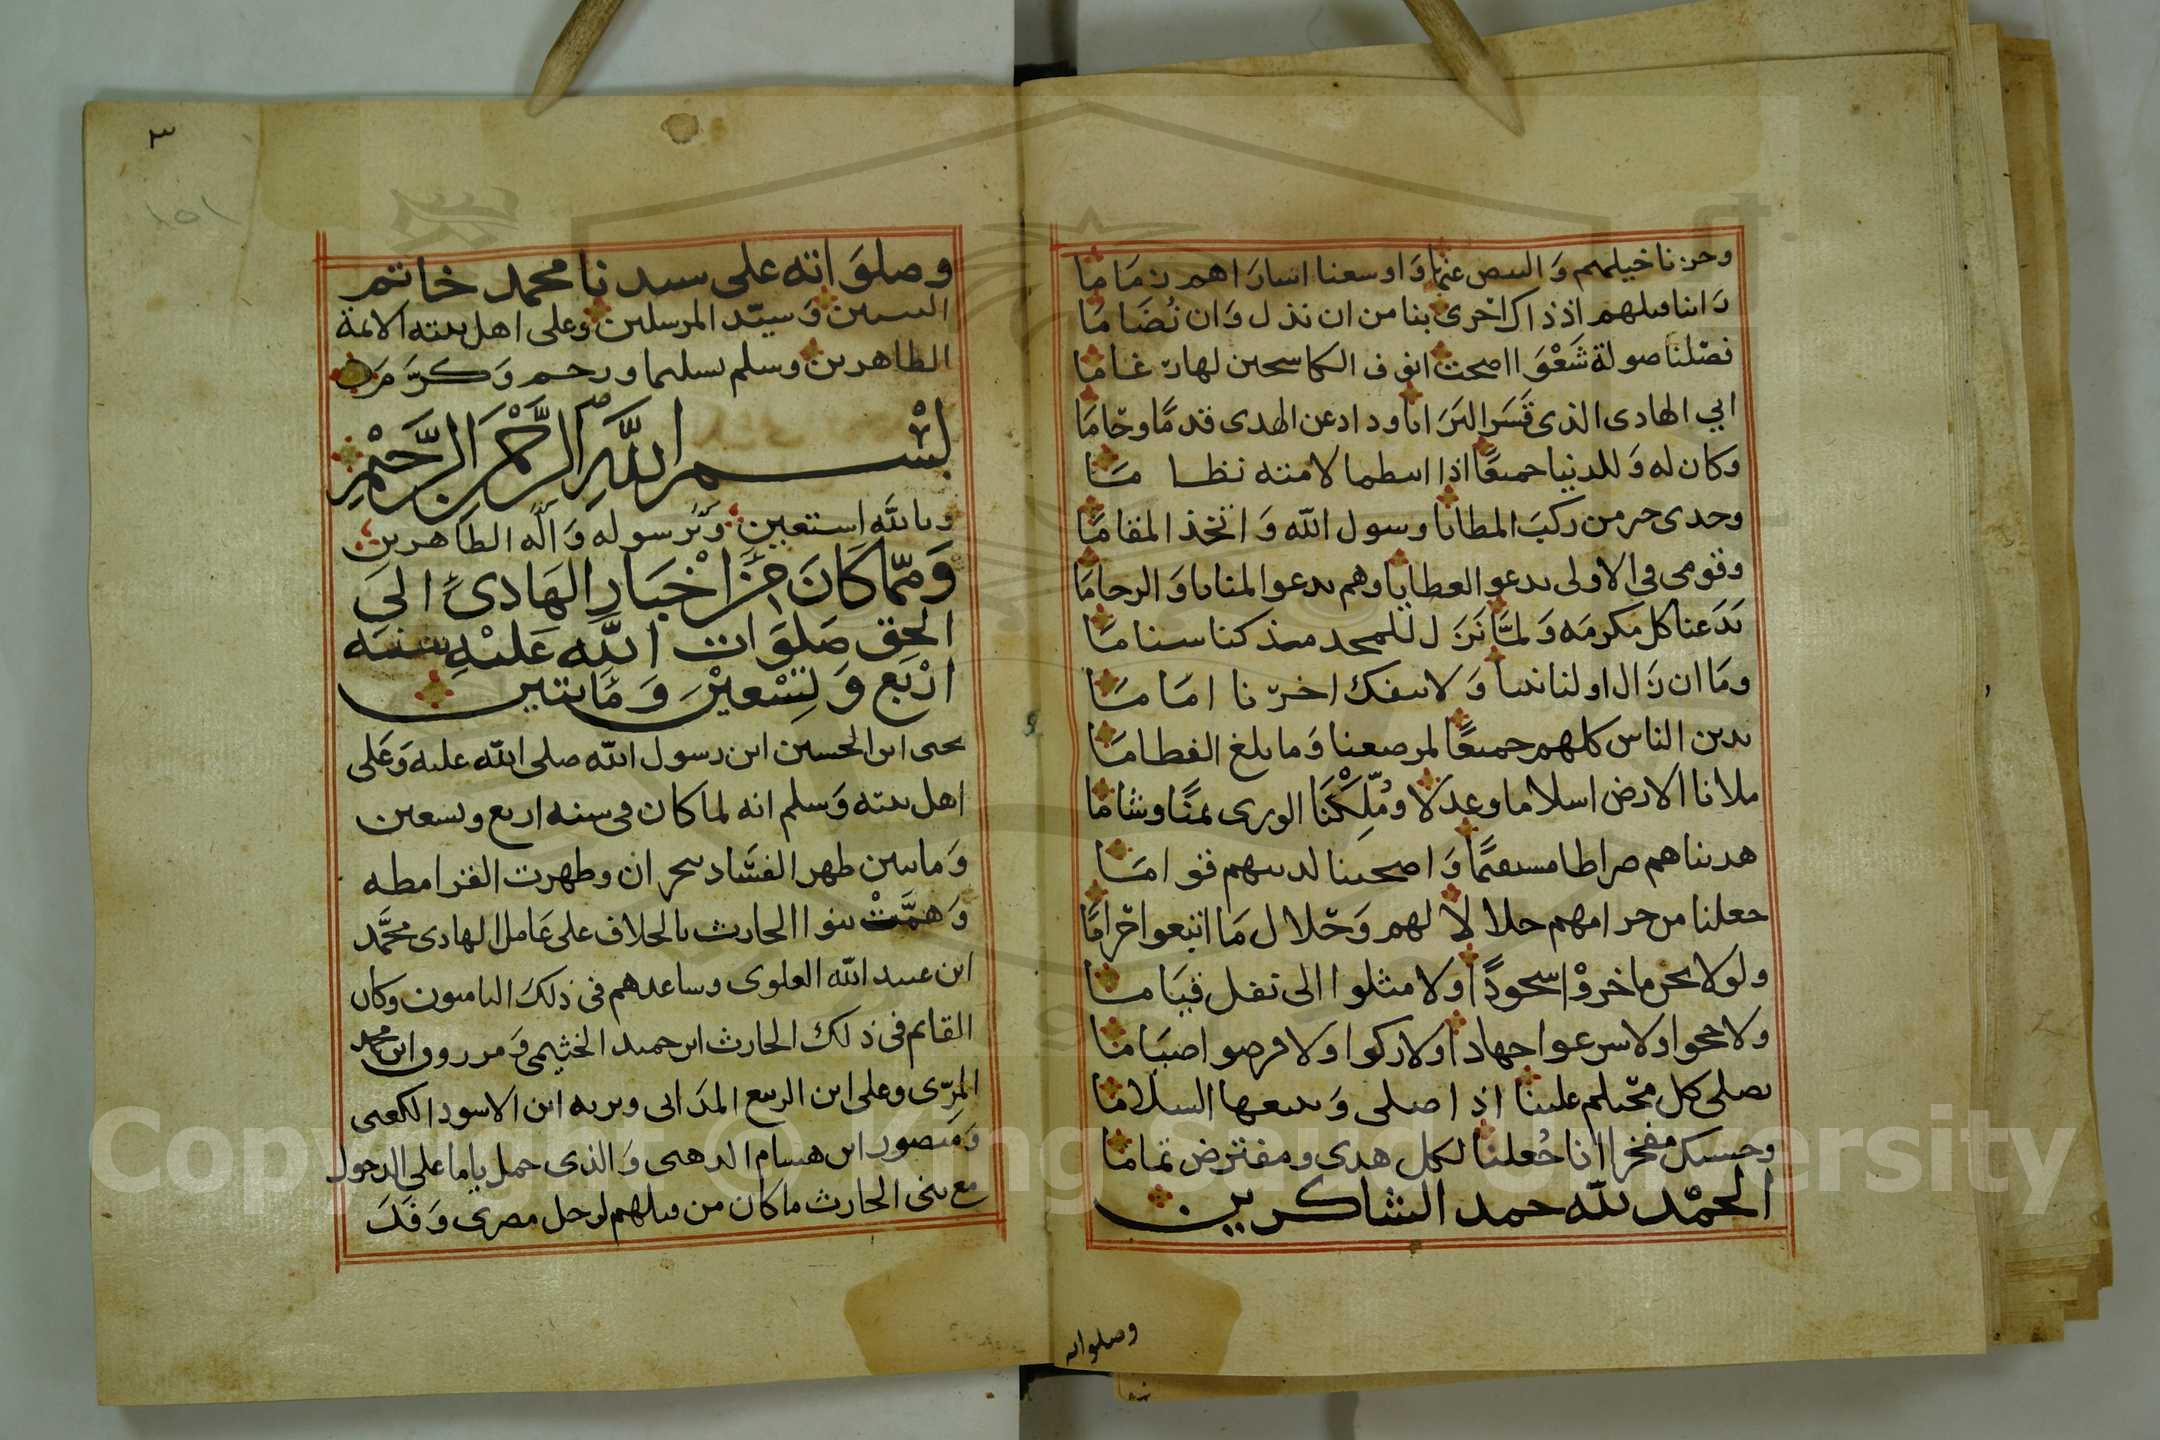 وحزنا خيلهم والبيض عنما واوسعنا اسارَاهم زماما
رَاينا قبلهم اذ ذاك احرى بنا من ان نذل وَان نُضَاما
فصلنا صولة شَعْوَا اصحت انوف الكاسحين لهارغاما
ابي الهادى الذى قَسَر البَرَايا وذاد عن الهدى قدمًا وحَاما
وكان له وَللدنيا جميعًا اذا اسطما لامته نظاما
وجدى خير من ركبَ المطايا رسول الله وَاتخذ المقامَا
وقومى فى الاولى يدعو العطايا وهم يدعو المنايا وَالرحامَا
بَدَعنا كل مكرمَه وَلمَّا نَزَل للمجد مذ كنا سناما
وَما ان زَال اولنا نبيا وَلا ينفك اخرنا امَامَا
يدين الناس كلهم جميعًا لمرضعنا وَما بلغ الفطامَا
ملانا الارض اسلاما وعدلا ومُلِّكْنَا الورى يمنًا وشامَا
هديناهم صراطا مستقيمًا وَاصحبنا لدينهم قوامَا
جعلنا من حرامهم حلالا لهم وَحَلال مَا اتبعوا حَرامًا
ولولا نحن ما خروْا سجودًا ولا مثلوا الى نفل قيَاما
ولا حجوا ولا سرعوا جهادًا ولا زكوا ولا فرضوا صيَامَا
يصلى كل محتلم علينا اذا صلى وَيتبعها السلامَا
وحسبك مفخرا انا جُعلنا لكل هدى ومفترض تمامَا
الحمْد لله حمد الشاكرين
وصلواته
٣
١٥١
وصلوَاته على سيدنا محمد خاتم
النبيين وَسيّد المرسلين وعلى اهل بيته الائمة
الطاهرين وسلم تسليما ورحم وَكرَّم
بسْم اللهِ الرَّحْمن الرَّحيْمِ
وبالله استعين وَبرسوله وَآله الطاهرين
وَممّا كَانَ منْ اخْبَارِ الهَادىْ الى
الحق صَلوَات اللّه عَليْهِ سنه
ارْبَع وَتِسْعيْنَ وَمَايتين
يحيى ابن الحسين ابن رسول الله صلى الله عليه وَعَلى
اهل بيته وَسلم انه لما كان فى سنه اربع وتسعين
وَمايتين ظهر الفسَاد بنجران وظهرت القرامطه
وَهمَّتْ بنو الحارث بالخلاف على عَامل الهادى محمَّد
ابن عبيد الله العلوى وساعدهم فى ذلك الياميون وكان
القايم فى ذلك الحارث ابن حميد الخثيمى وَمرزوو ابن محمد
المرّى وعلى ابن الربيع المدَانى ويزيد ابن الاسود الكعبى
وَمنصور ابن هسام الدهنى وَالذى حمل ياما على الدخول
مع بنى الحارث ما كان من قبلهم لرجل مصرى وَفَدَ
Copyright © King Saud University